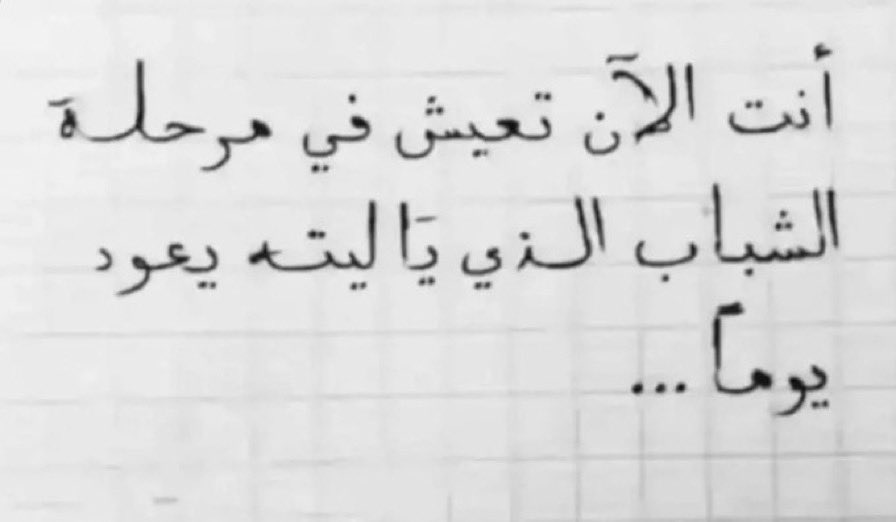 أنت الآن تعيش في مرحلة
الشباب الذي يَا ليته يعود
يوماً ...